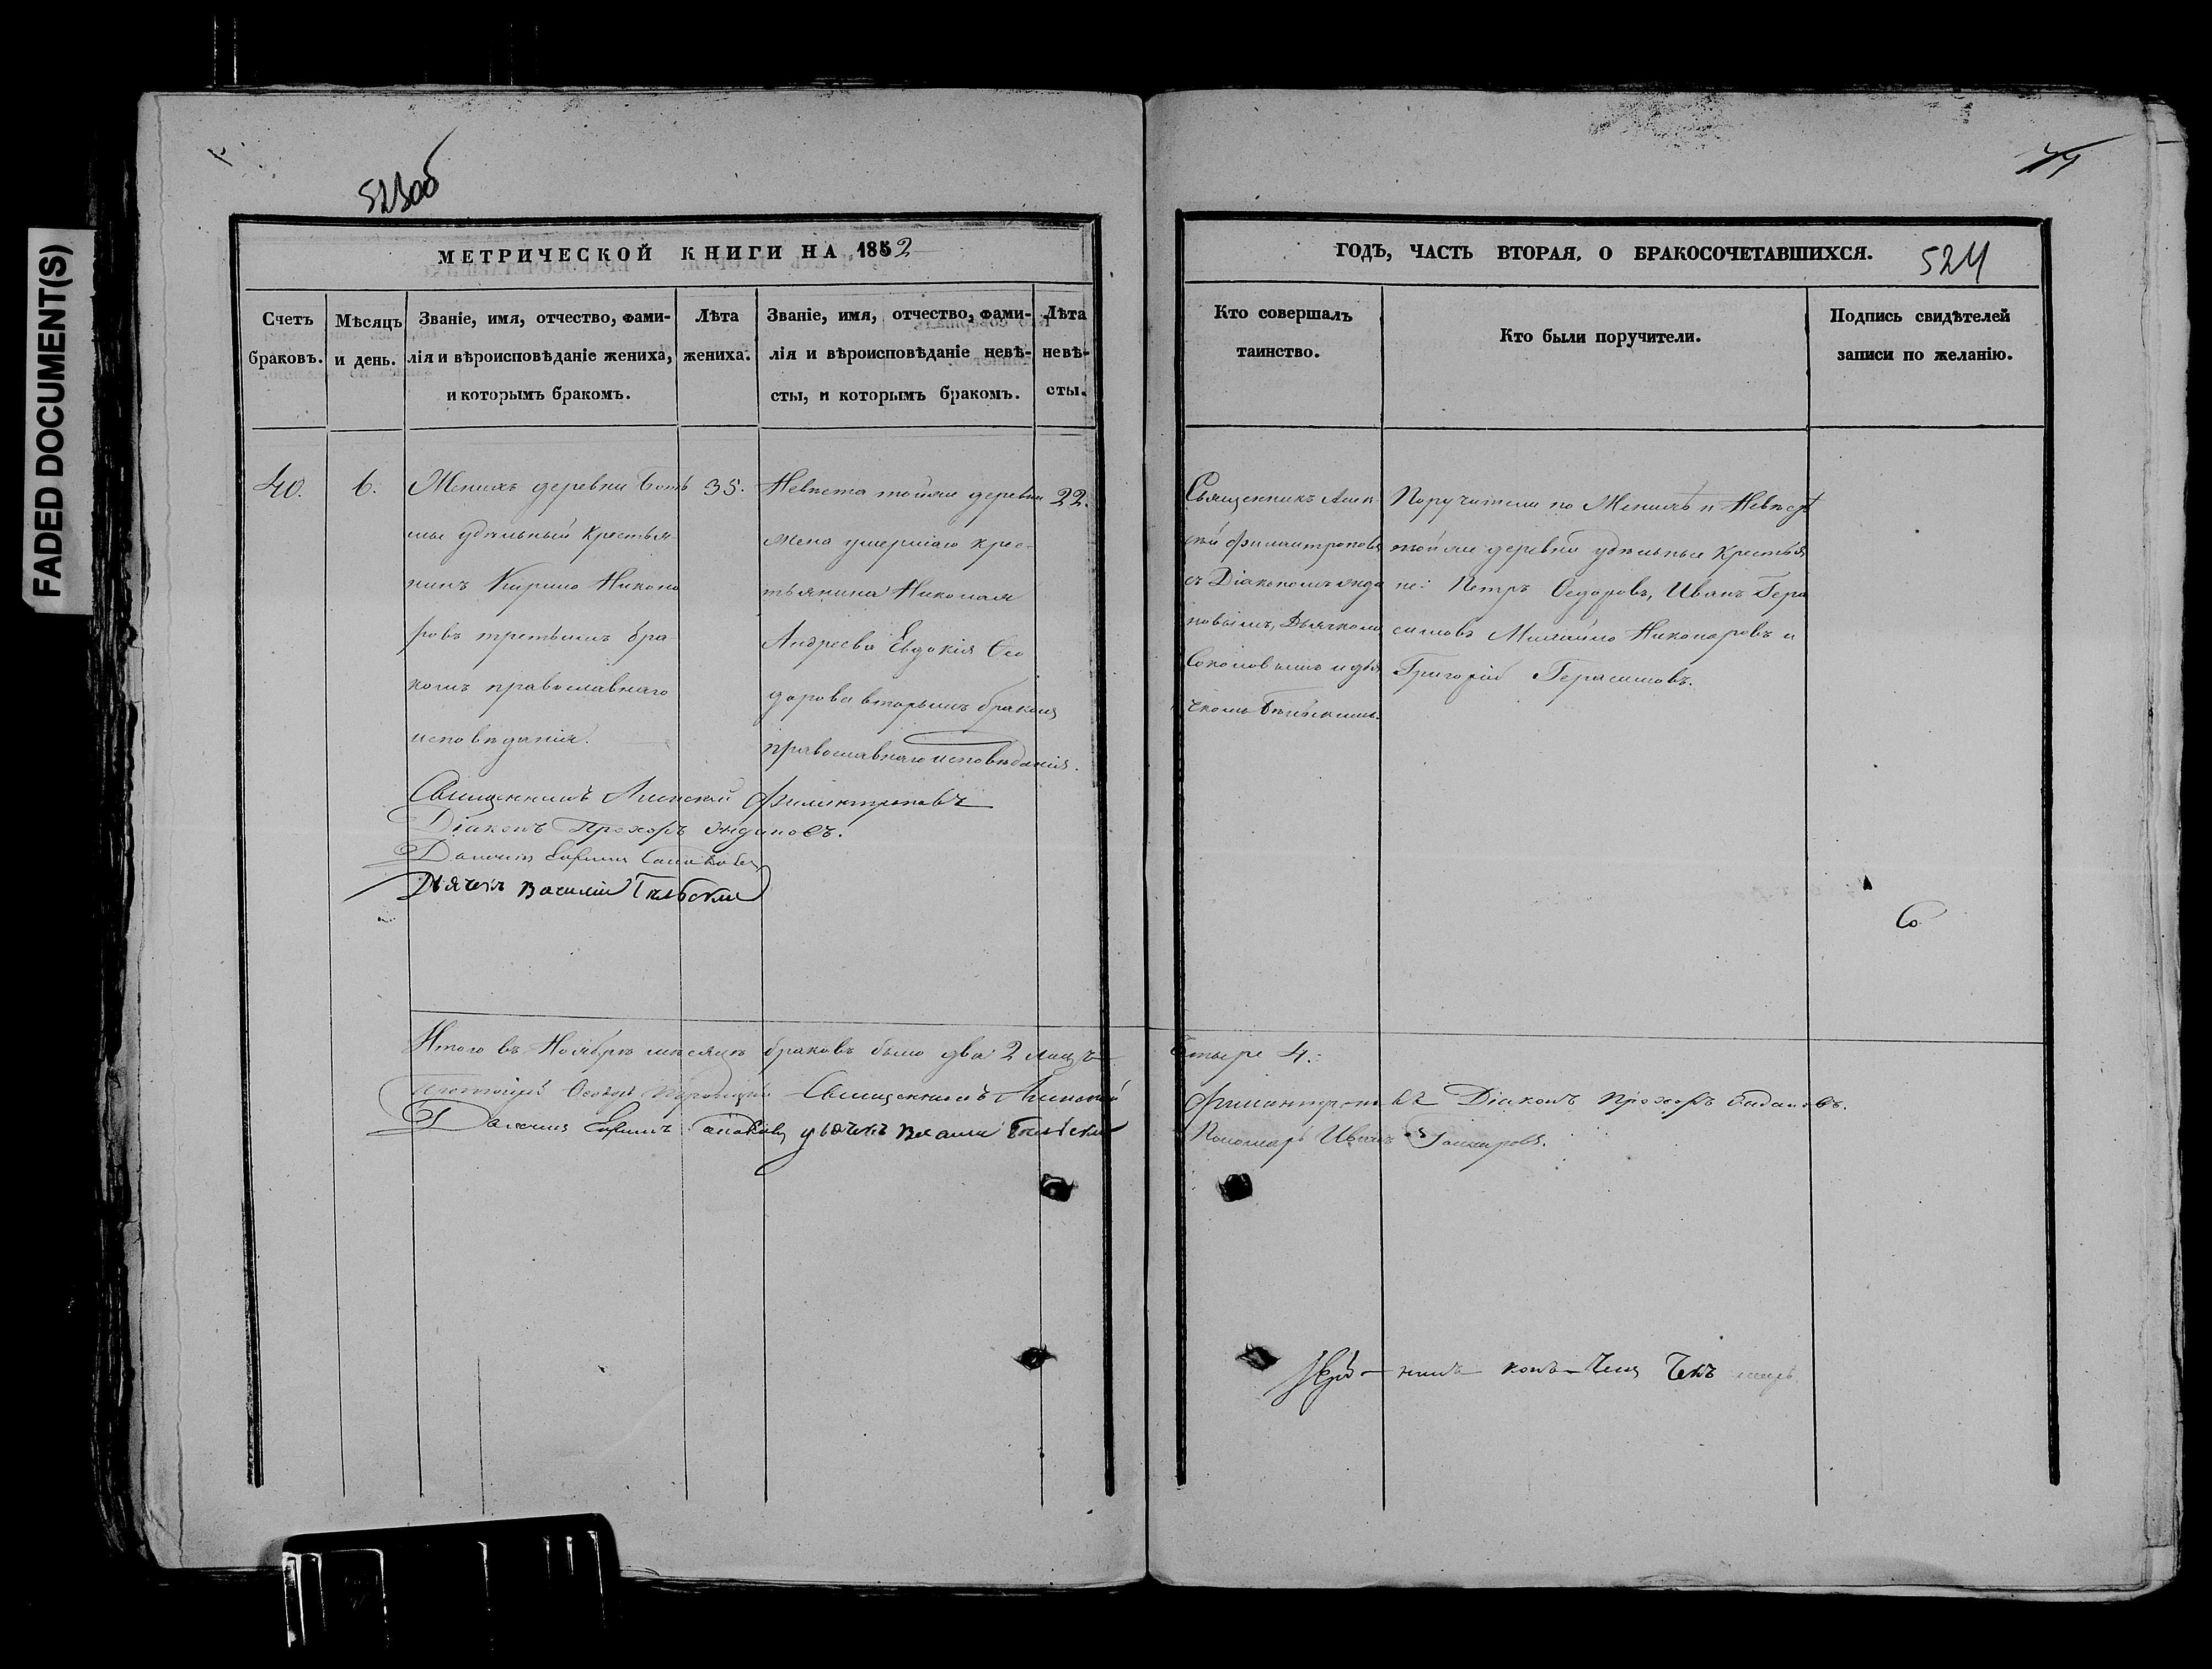 FADED DOCUMENT(S)
523об
МЕТРИЧЕСКОЙ КНИГИ НА 1852
Счетъ браковъ.
Мѣсяцъ и день.
Званіе, имя, отчество, фами-
лія и вѣроисповѣданіе жениха,
и которымъ бракомъ.
Лѣта
жениха.
Званіе, имя, отчество, фами-
лія и вѣроисповѣданіе невѣ-
сты, и которымъ бракомъ.
Лѣта
невѣ-
сты.
40.
6.
Женихъ деревни
удѣльный крестья-
нинъ Кирило Никано
ровъ третьимъ бра
комъ православнаго
исповѣданія.
35.
Невѣста тойже деревни
жена умершаго крес-
тьянина Николая
Андреева Евдокія Ѳео
дорова вторымъ бракомъ
православнаго исповѣданія.
22.
Священникъ Алексѣй Филантроповъ
Діаконъ Прохоръ
Дьячекъ Василій
Итого въ Ноябрѣ мѣсяцѣ браковъ было два 2 лицъ
Священникъ Алексѣй
дьячекъ Василій
ГОДЪ, ЧАСТЬ ВТОРАЯ, О БРАКОСОЧЕТАВШИХСЯ.
524
Кто совершалъ
таинство.
Кто были поручители.
Подпись свидѣтелей
записи по желанію.
Священникъ Алек-
сѣй Филантроповъ
съ Діакономъ
новымъ, Дьячкомъ
Соколовымъ и дья
чкомъ
Поручители по Женихѣ и Невѣстѣ
тойже деревни удѣльные крестья
не: Петръ Ѳедоровъ, Иванъ Гера
симовъ Михайло Никаноровъ и
Григорій Герасимовъ.
Четыре 4.
Филантроповъ Діаконъ Прохоръ
Пономарь Иванъ